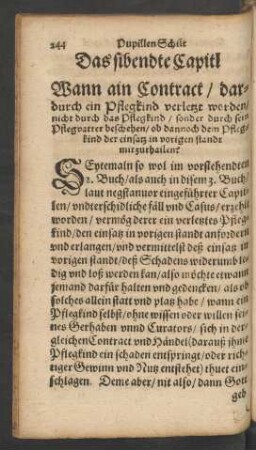 244 Pupillen Schilt
Das sibendte Capitl
Wann ain Contract / dar-
durch ein Pflegkind verletzt worden /
nicht durch das Pflegkind / sonder durch sein
Pflegvatter beschehen / ob dannoch dem Pfleg-
kind der einsatz in vorigen stande
mitzutheilen?
SEytemaln so wol im vorstehendten
2. Buch / als auch in disem 3. Buch /
laut negstanuor eingeführter Capit-
len / vnderschidliche fäll vnd Casus / erzehlt
worden / vermög derer ein verletztes Pfleg-
kind / den einsatz in vorigen standt anfordern
vnd erlangen / vnd vermittelst deß einsatz in
vorigen standt / deß Schadens widerumb le-
dig vnd loß werden kan / also möchte etwann
jemand darfür halten vnd gedencken / als ob
solches allein statt vnd platz habe / wann ein
Pflegkind selbst / ohne wissen oder willen sei-
nes Gerhaben vnnd Curators / sich in der-
gleichen Contract vnd Händel (darauß jhme
Pflegkind ein schaden entspringt / oder rich-
tiger Gewinn vnd Nutz enstehet) thuet ein-
schlagen. Deme aber / nit also / dann Gott
geb